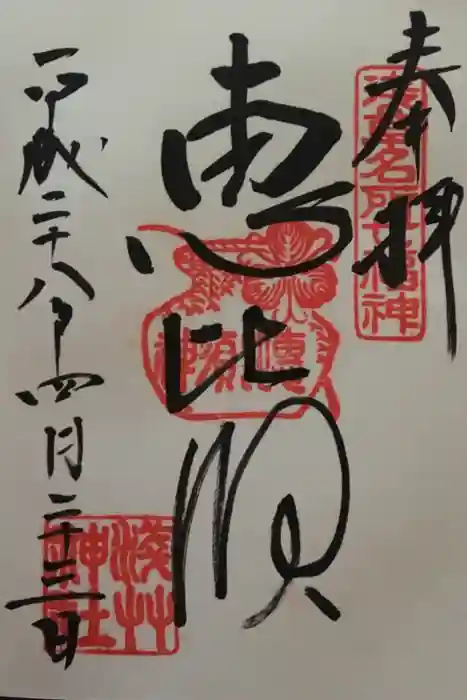 奉拝
浅草名所七福神
恵比須
浅草神社
平成二十八年四月二十三日